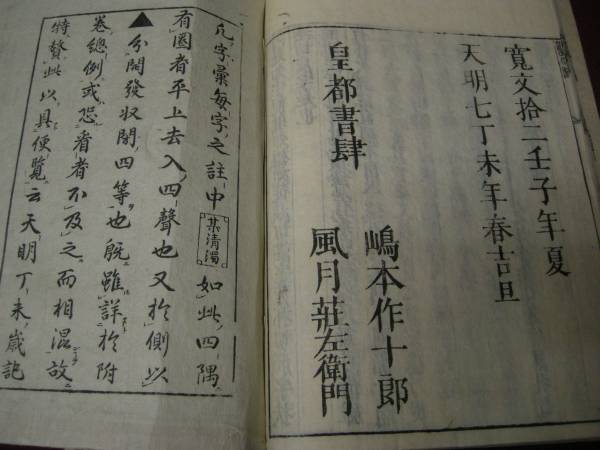 寛文拾二壬子年夏
天明七丁未年春吉旦
皇都書肆
嶋本作十郎
風月莊左衛門
凡字彙每字之註中某清濁如此四隅
有圏者平上去入四聲也又於側以
▲分開發収閉四等也既雖詳於附
卷總例或恐看者不及之而相混故
特贅此以具便覧云天明丁未歳記